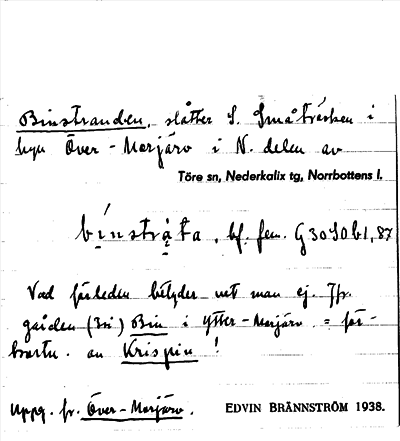 Binstranden, slåtter S. Småträsken i
byn Över-Morjärv i N. delen av
Töre sn, Nederkalix tg, Norrbottens l.
bı̣nstrạ̊ta, bf. fem. G 30 S 0 b 1, 87
Vad förleden betyder vet man ej. Jfr.
gården (3:1) Bin i Ytter-Morjärv = för-
kortn. av Krispin!
Uppg. fr. Över-Morjärv. EDVIN BRÄNNSTRÖM 1938.